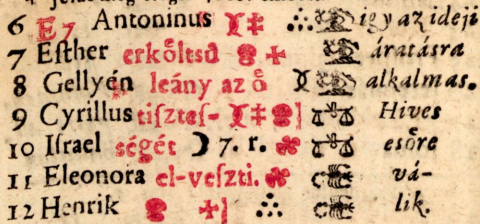 6 E 7 Antoninus így az ideji
7 Eſther erkoͤltsū áratásra
8 Gellyén leány az oͤ alkalmas.
9 Cyrillus tiſztes- Hives
10 Iſrael ségét 7. r. esoͤre
11 Eleonora el-veſzti. vá-
12 Henrik lik.